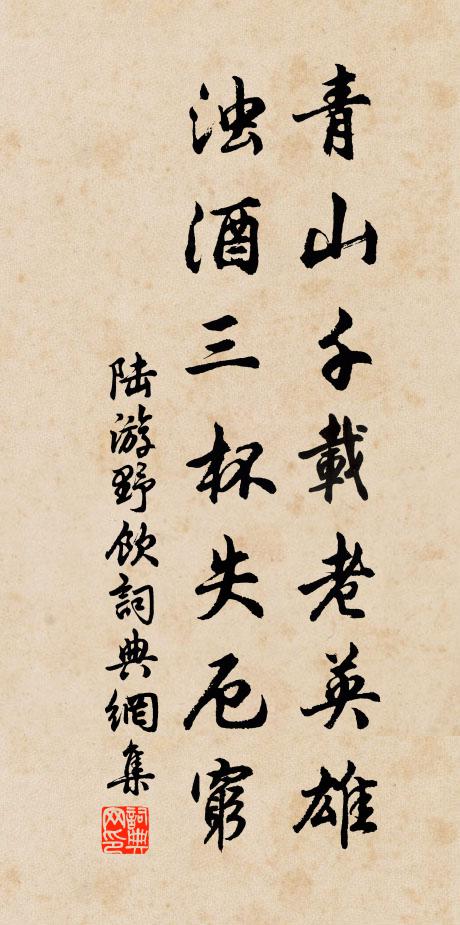 青山千載老英雄
浊酒三杯失厄窮
陆游野飲詞典網集
詞典网印